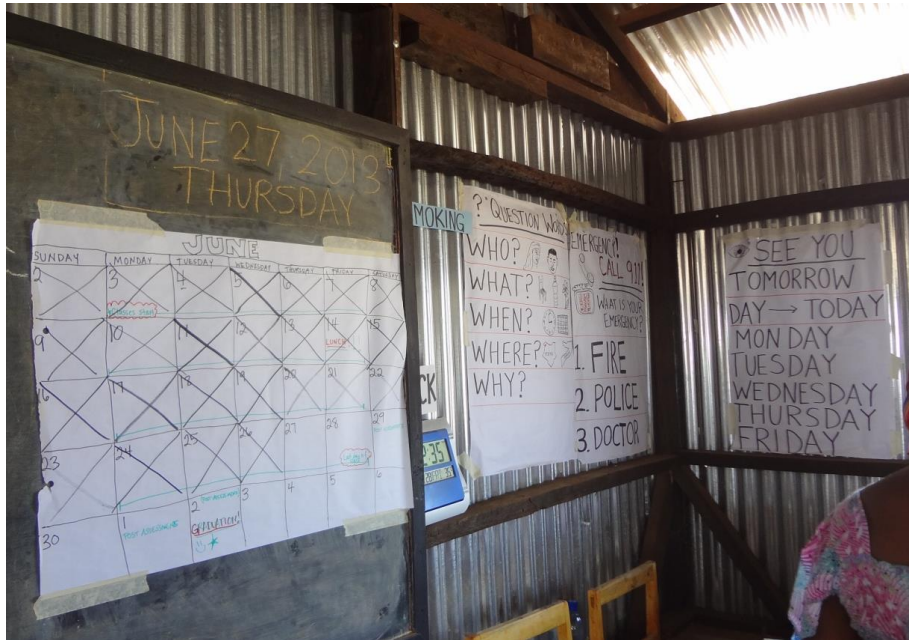 JUNE 27 2013
THURSDAY
JUNE
SUNDAY MONDAY TUESDAY WEDNESDAY THURSDAY FRIDAY SATURDAY
2 3 4 5 6 7 8
9 10 11 12 13 14 15
LUNCH
16 17 18 19 20 21 22
23 24 25 26 27 28 29
30 1 2 3 4 5 6
POST ASSESSMENT
GRADUATION!
MOKING
CK
:35
"?" QUESTION WORDS
WHO?
WHAT?
WHEN?
WHERE?
WHY?
EMERGENCY!
CALL 911!
WHAT IS YOUR
EMERGENCY?
1. FIRE
2. POLICE
3. DOCTOR
SEE YOU
TOMORROW
DAY → TODAY
MONDAY
TUESDAY
WEDNESDAY
THURSDAY
FRIDAY